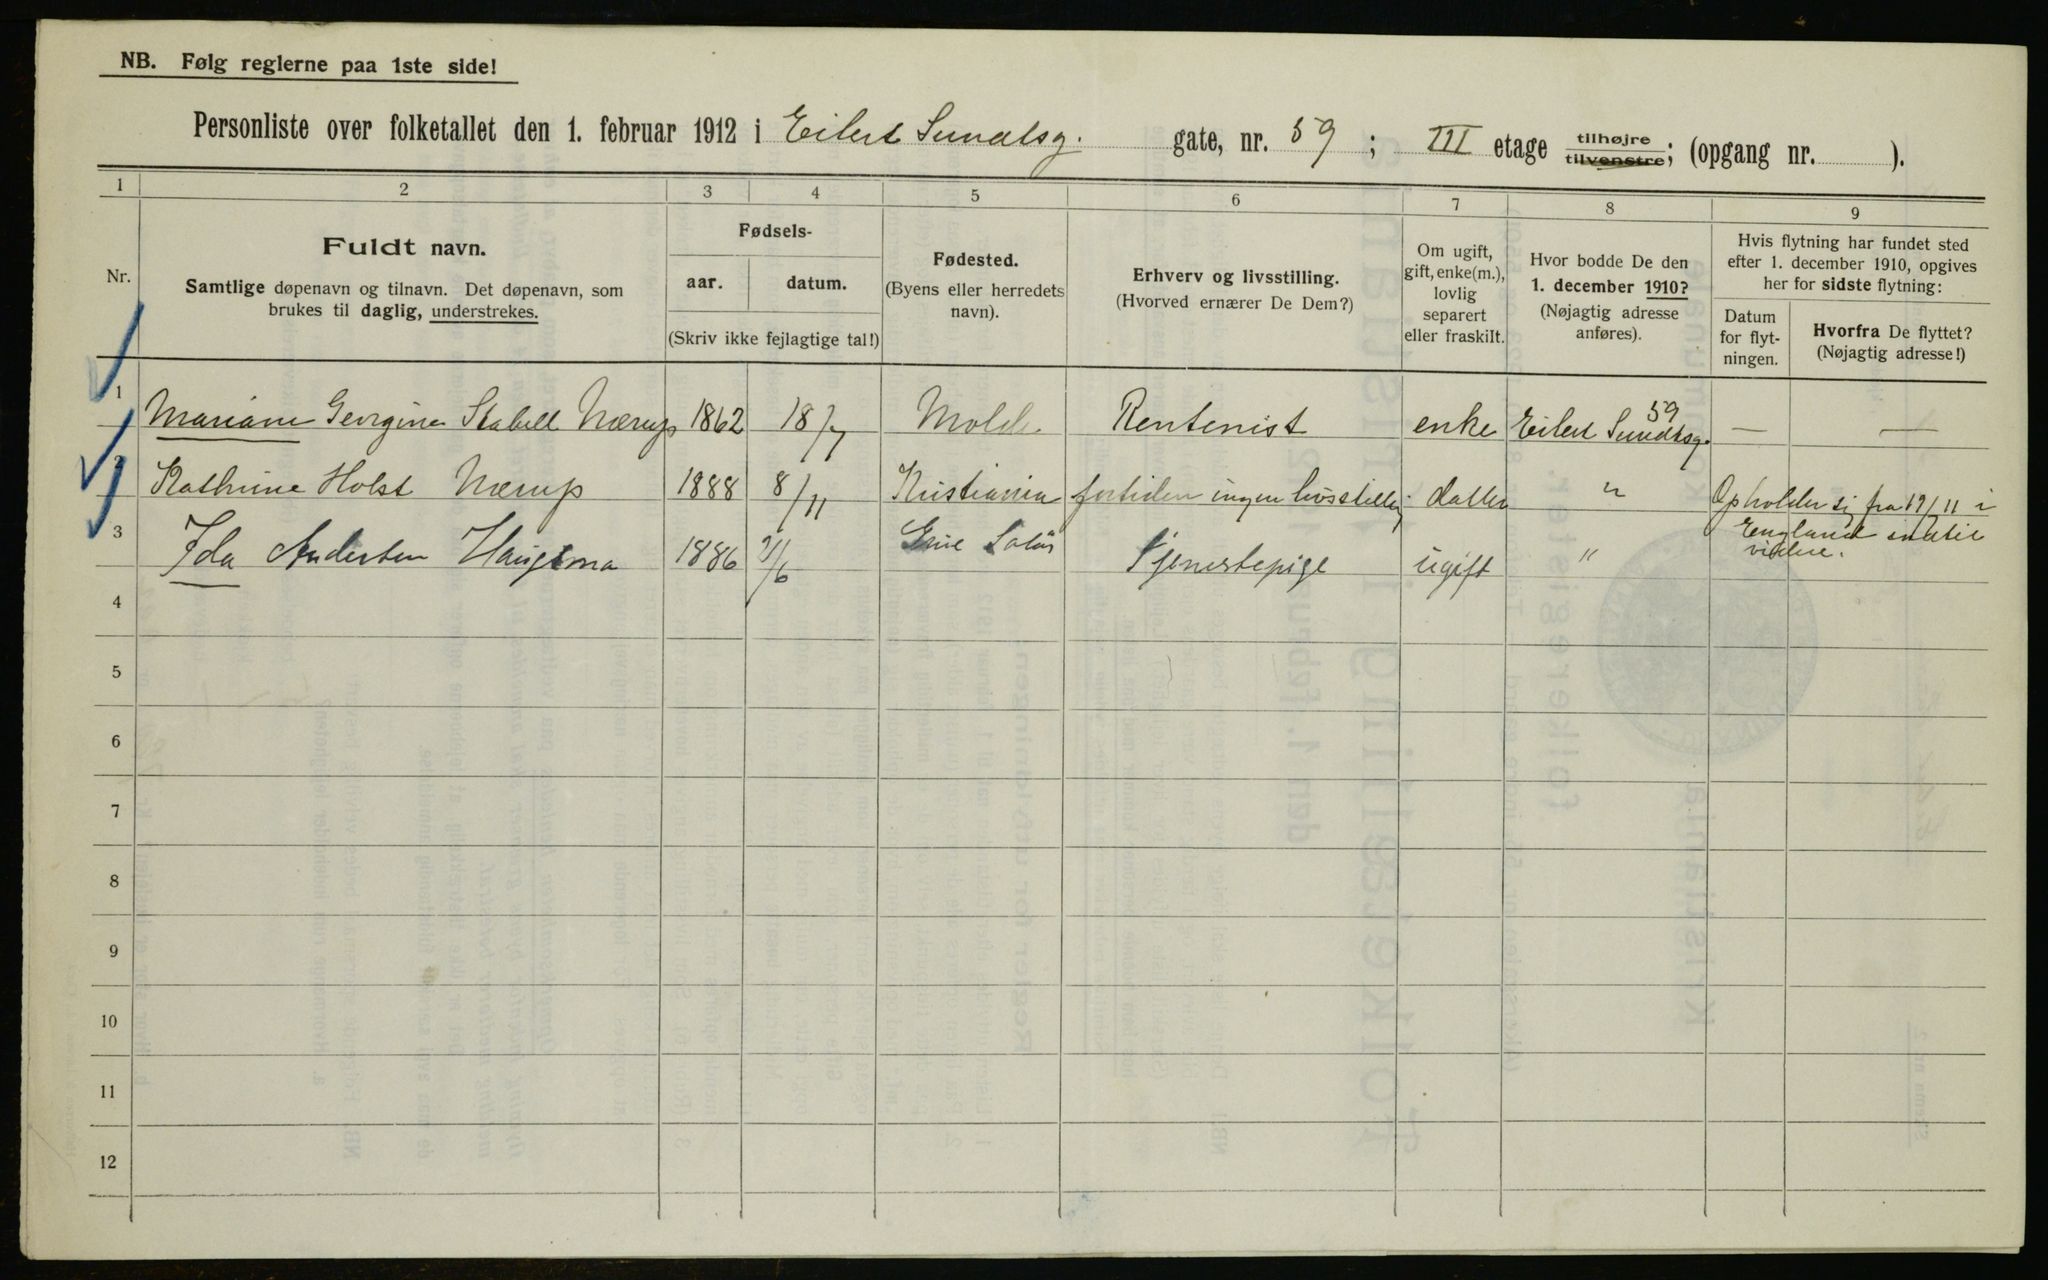 NB. Følg reglerne paa 1ste side!
Personliste over folketallet den 1. februar 1912 i Eilert Sundtsg. gate, nr. 59 ; III etage tilhøjre tilvenstre; (opgang nr. ).
1 2 3 4 5 6 7 8 9
Nr.
Fuldt navn.
Samtlige døpenavn og tilnavn. Det døpenavn, som
brukes til daglig, understrekes.
Fødsels-
aar. datum.
(Skriv ikke fejlagtige tal!)
Fødested.
(Byens eller herredets
navn).
Erhverv og livsstilling.
(Hvorved ernærer De Dem?)
Om ugift,
gift, enke(m.),
lovlig
separert
eller fraskilt.
Hvor bodde De den
1. december 1910?
(Nøjagtig adresse
anføres).
Hvis flytning har fundet sted
efter 1. december 1910, opgives
her for sidste flytning:
Datum
for flyt-
ningen.
Hvorfra De flyttet?
(Nøjagtig adresse!)
1 Mariane Georgine Stabell Nærup 1862 18/7 Molde Rentenist enke Eilert Sundtsg. 59 — —
2 Kathrine Holst Nærup 1888 8/11 Kristiania fortiden ingen livsstilling datter " Opholder sig fra 19/11 i
England indtil
videre.
3 Ida Andersen 1886 /6 Grue Solør Tjenestepige ugift "
4
5
6
7
8
9
10
11
12